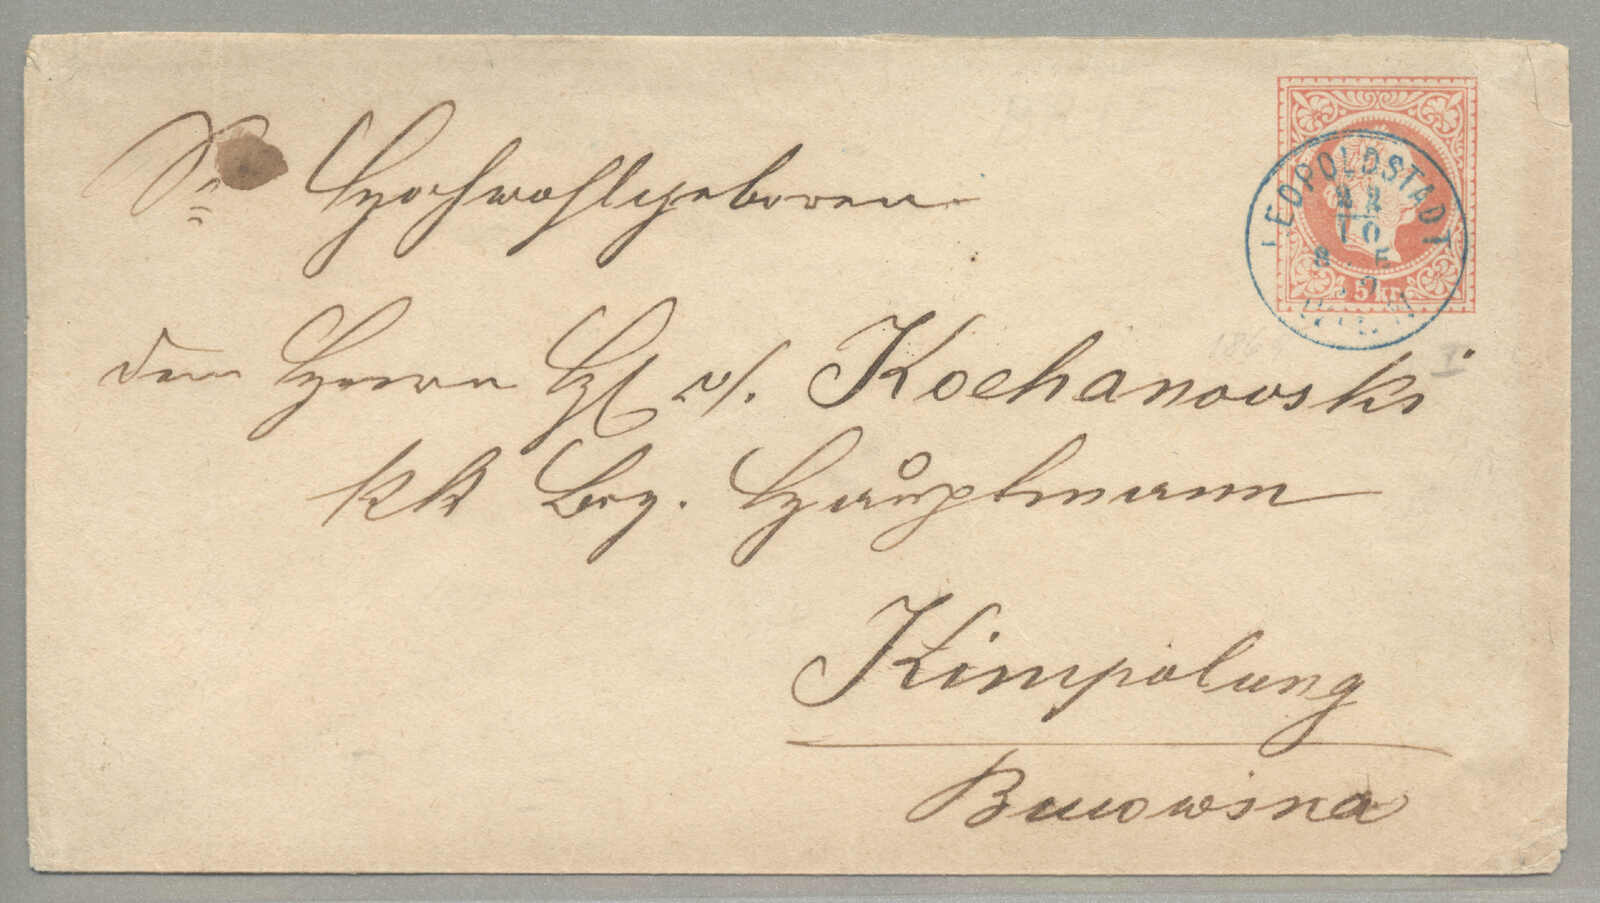 Sr Hochwohlgeboren
dem Herrn H v. Kochanovski
kk Bez. Hauptmann
Kimpolung
Bucowina
LEOPOLDSTADT
22
10
8 E
WIEN
5 KR